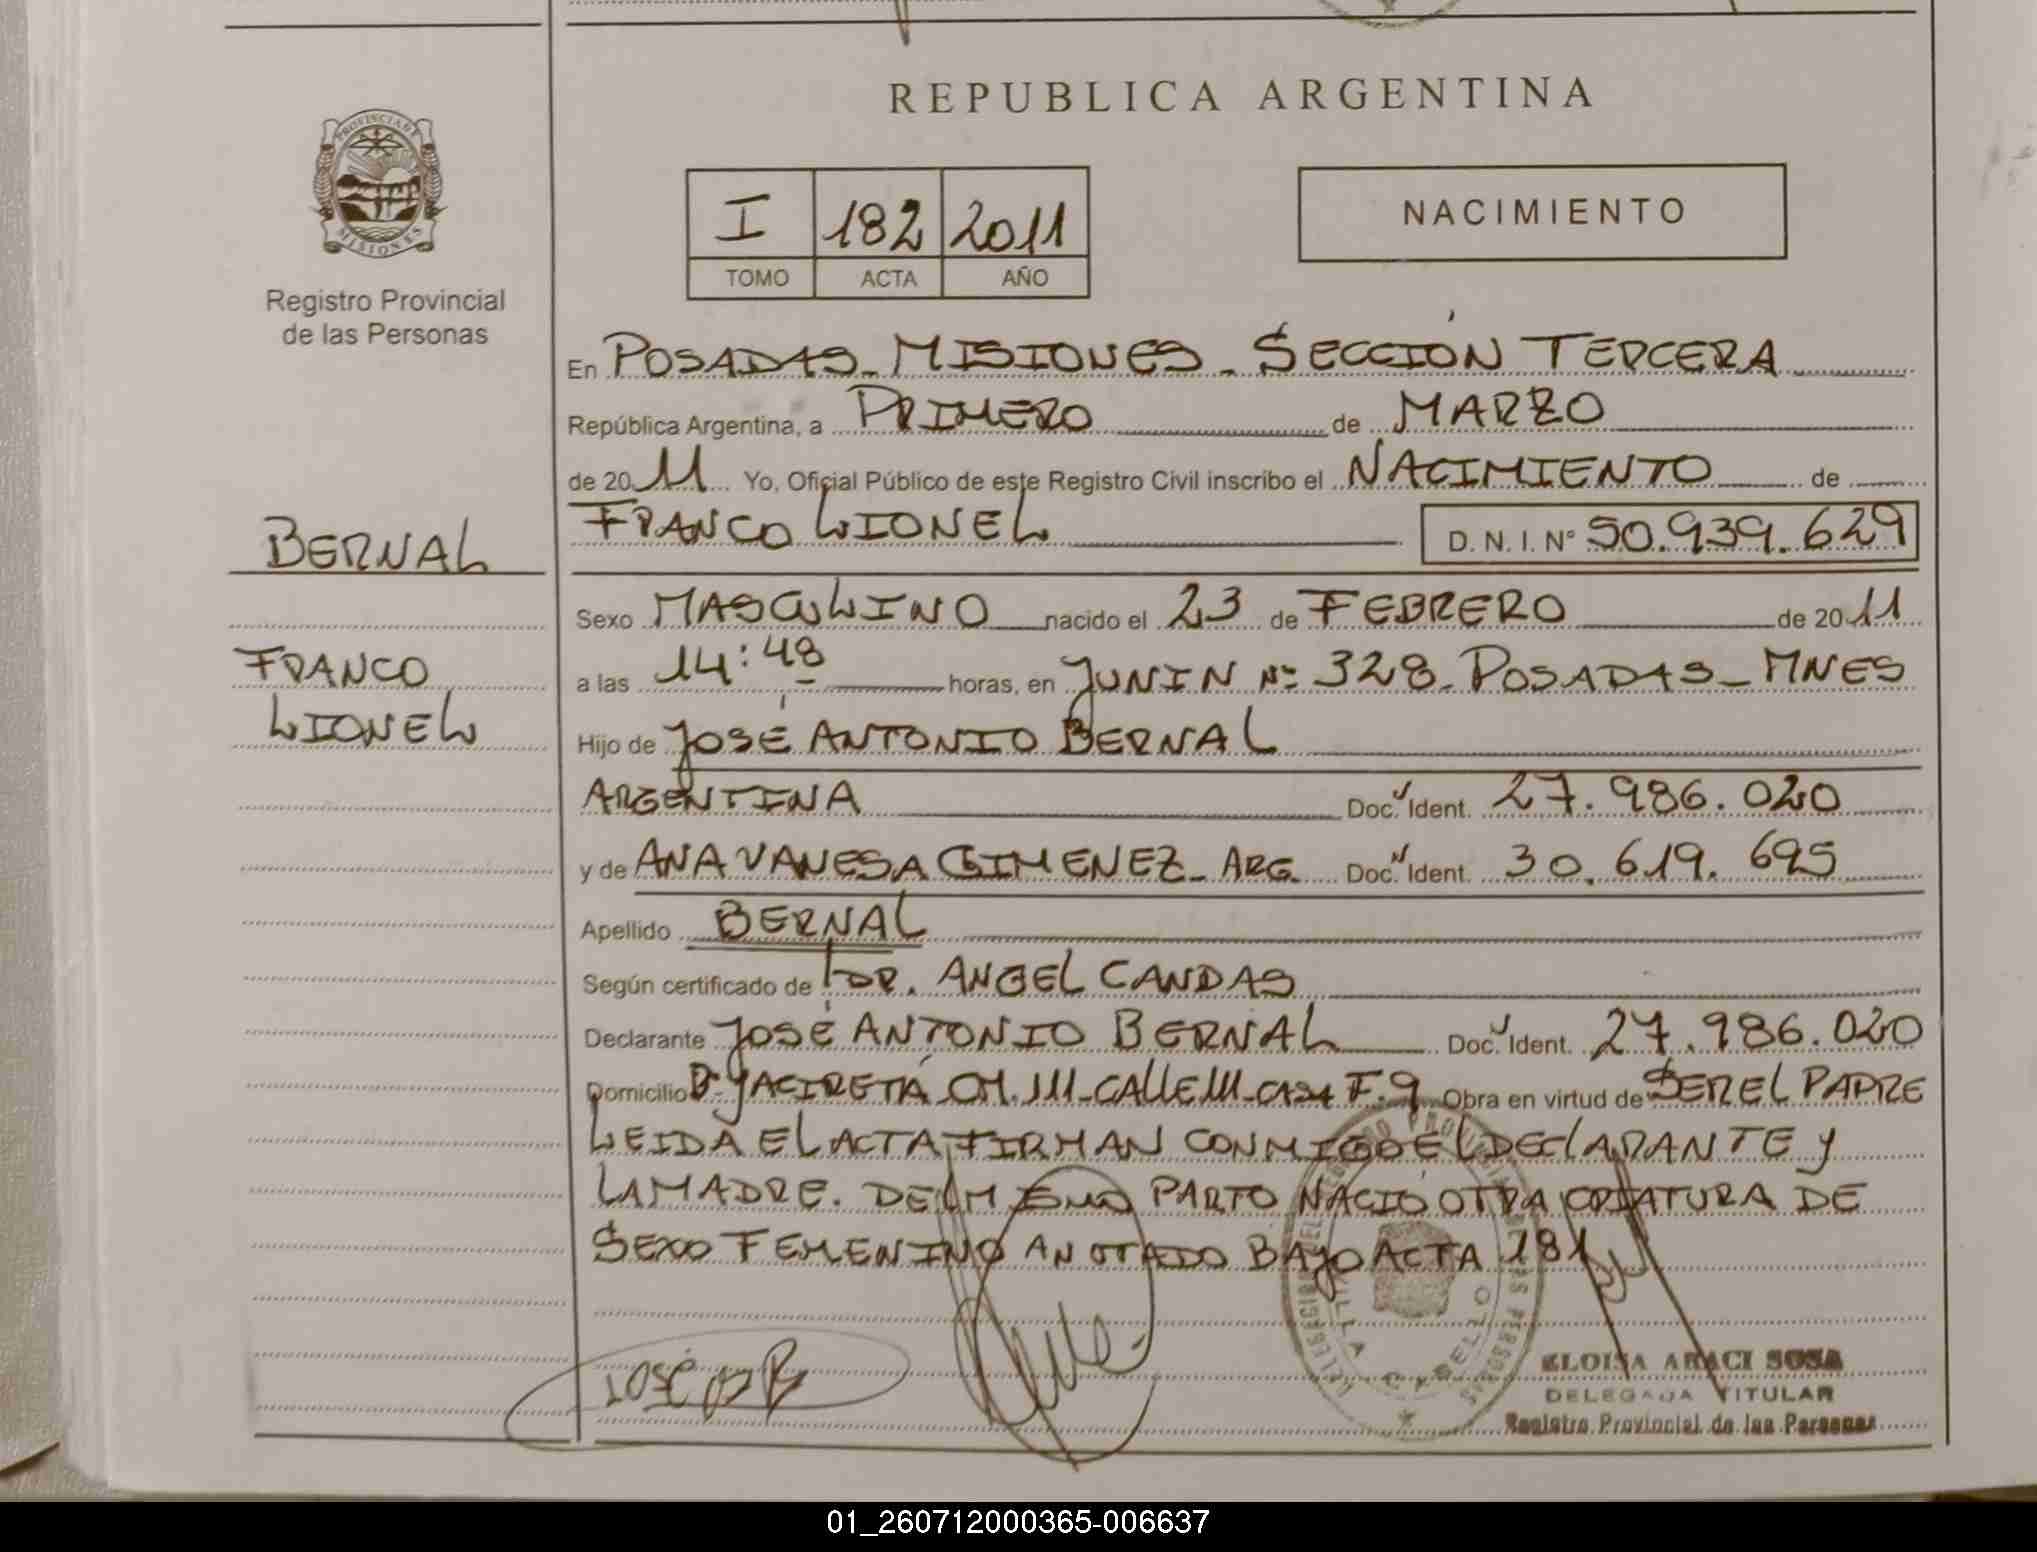 REPUBLICA ARGENTINA
PROVINCIA DE MISIONES
Registro Provincial
de las Personas
I 182 2011
TOMO ACTA AÑO
NACIMIENTO
En POSADAS - MISIONES - SECCIÓN TERCERA
República Argentina, a PRIMERO de MARZO
de 2011 Yo, Oficial Público de este Registro Civil inscribo el NACIMIENTO de
BERNAL
FRANCO LIONEL D. N. I. N° 50.939.629
Sexo MASCULINO nacido el 23 de FEBRERO de 2011
FRANCO
LIONEL
a las 14:48 horas, en JUNIN Nº 328 - POSADAS - MNES
Hijo de JOSÉ ANTONIO BERNAL
ARGENTINA Doc. Ident. 27.986.020
y de ANA VANESA GIMENEZ - ARG. Doc. Ident. 30.619.695
Apellido BERNAL
Según certificado de DR. ANGEL CANDAS
Declarante JOSÉ ANTONIO BERNAL Doc. Ident. 27.986.020
Domicilio Bº YACIRETÁ CH. 111 - CALLE 111 - CASA F. 9 Obra en virtud de SER EL PADRE
LEIDA EL ACTA FIRMAN CONMIGO EL DECLARANTE Y
LA MADRE. DEL MISMO PARTO NACIÓ OTRA CRIATURA DE
SEXO FEMENINO ANOTADO BAJO ACTA 181
VILLA CABELLO
ELOISA ARACI SOSA
DELEGADA TITULAR
Registro Provincial de las Personas
01_260712000365-006637